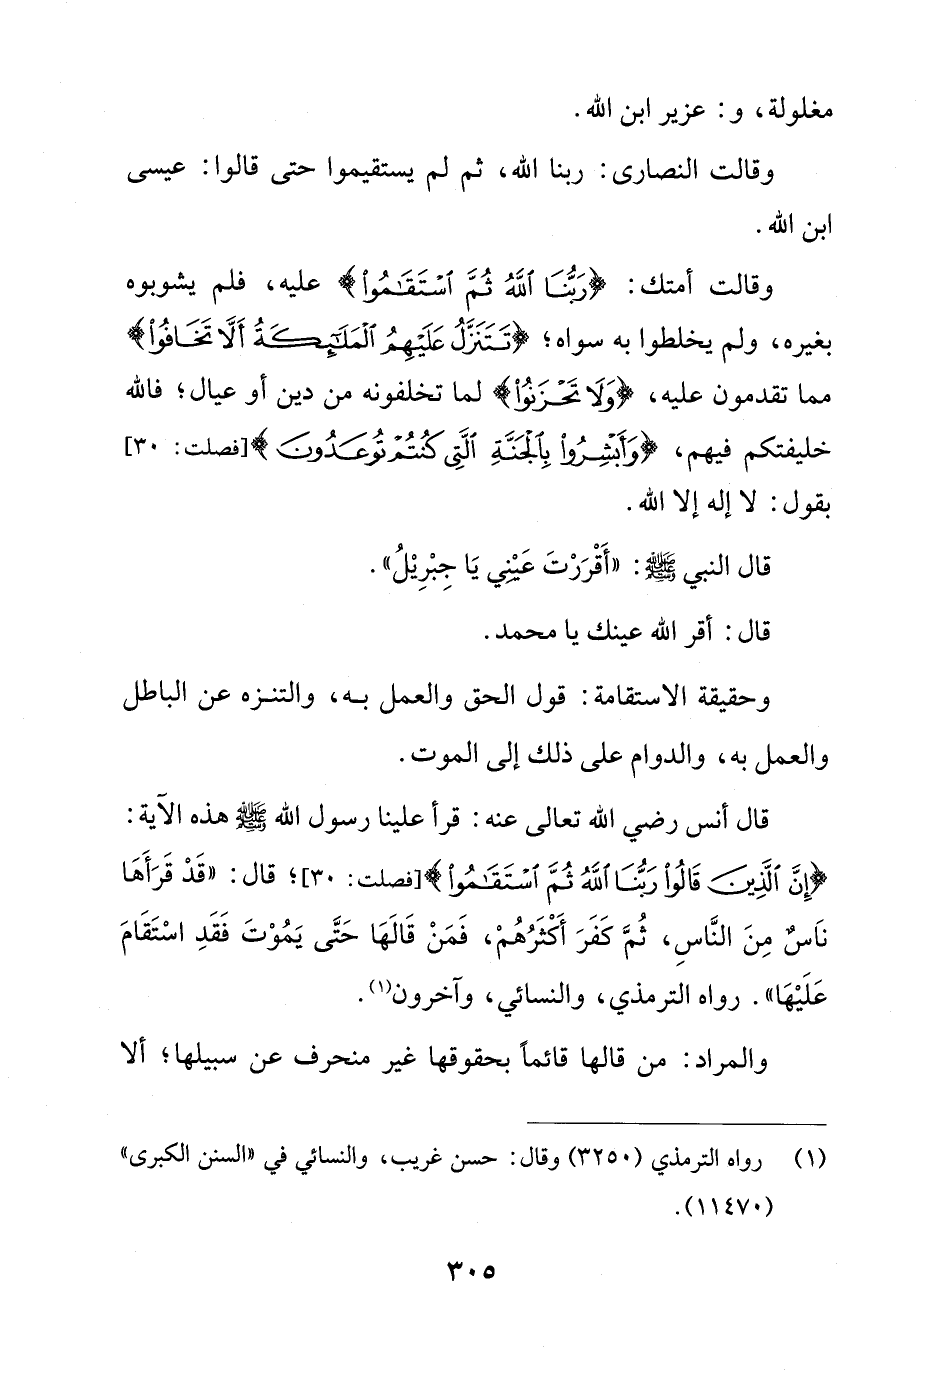 مغلولة، و: عزير ابن الله.
وقالت النصارى: ربنا الله، ثم لم يستقيموا حتى قالوا: عيسى
ابن الله.
وقالت أمتك: ﴿رَبُّنَا ٱللَّهُ ثُمَّ ٱسْتَقَٰمُوا۟﴾ عليه، فلم يشوبوه
بغيره، ولم يخلطوا به سواه؛ ﴿تَتَنَزَّلُ عَلَيْهِمُ ٱلْمَلَٰٓئِكَةُ أَلَّا تَخَافُوا۟﴾
مما تقدمون عليه، ﴿وَلَا تَحْزَنُوا۟﴾ لما تخلفونه من دين أو عيال؛ فالله
خليفتكم فيهم، ﴿وَأَبْشِرُوا۟ بِٱلْجَنَّةِ ٱلَّتِى كُنتُمْ تُوعَدُونَ﴾[فصلت: ٣٠]
بقول: لا إله إلا الله.
قال النبي ﷺ: «أَقْرَرْتَ عَيْنِي يَا جِبْرِيْلُ».
قال: أقر الله عينك يا محمد.
وحقيقة الاستقامة: قول الحق والعمل بـه، والتنـزه عن الباطل
والعمل به، والدوام على ذلك إلى الموت.
قال أنس رضي الله تعالى عنه: قرأ علينا رسول الله ﷺ هذه الآية:
﴿إِنَّ ٱلَّذِينَ قَالُوا۟ رَبُّنَا ٱللَّهُ ثُمَّ ٱسْتَقَٰمُوا۟﴾[فصلت: ٣٠]؛ قال: «قَدْ قَرَأَهَا
نَاسٌ مِنَ النَّاسِ، ثُمَّ كَفَرَ أَكْثَرُهُمْ، فَمَنْ قَالَهَا حَتَّى يَمُوْتَ فَقَدِ اسْتَقَامَ
عَلَيْهَا». رواه الترمذي، والنسائي، وآخرون(١).
والمراد: من قالها قائماً بحقوقها غير منحرف عن سبيلها؛ ألا
(١) رواه الترمذي (٣٢٥٠) وقال: حسن غريب، والنسائي في «السنن الكبرى»
(١١٤٧٠).
٣٠٥